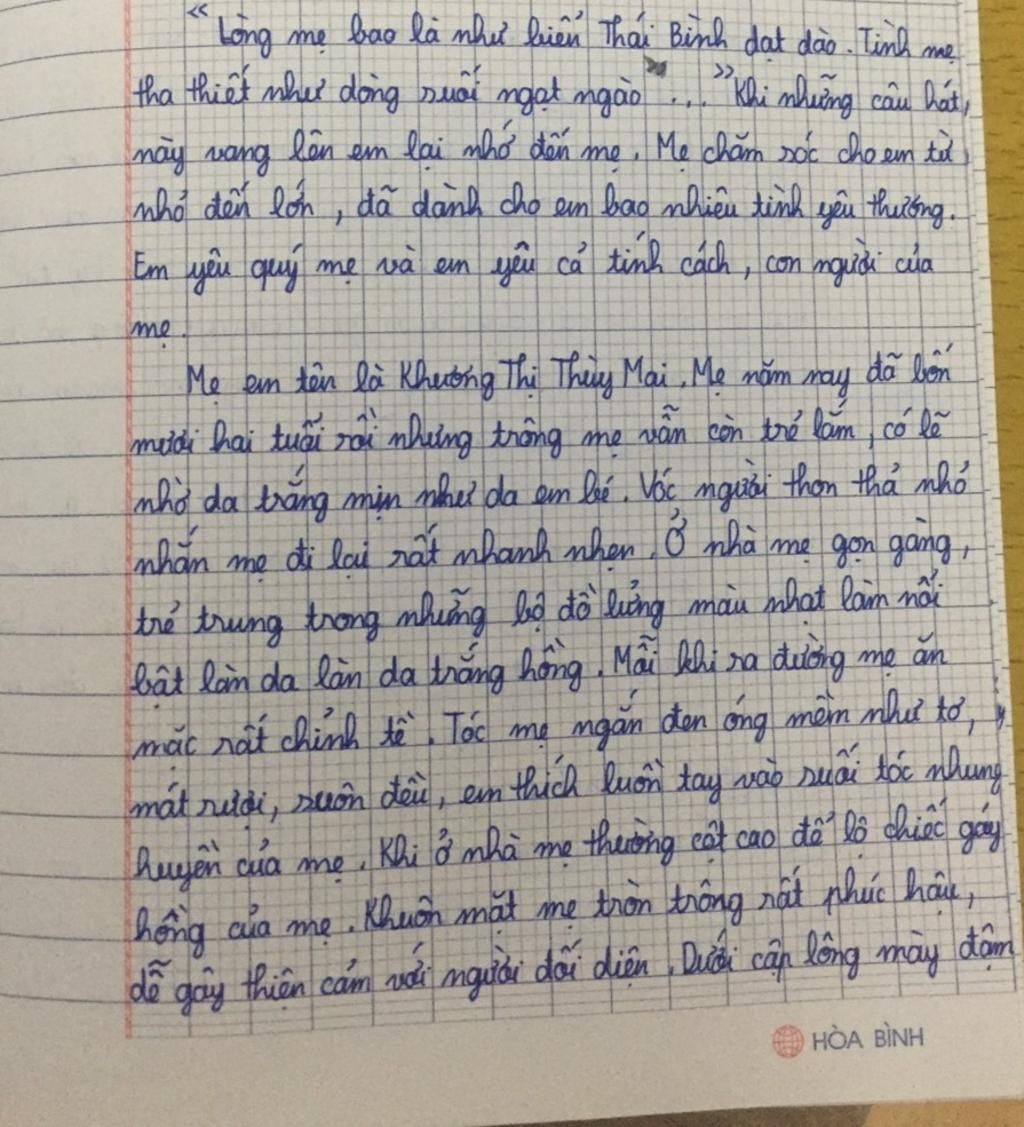 “ Lòng mẹ bao la như biển Thái Bình dạt dào. Tình mẹ
tha thiết như dòng suối ngọt ngào ... ” Khi những câu hát
này vang lên em lại nhớ đến mẹ. Mẹ chăm sóc cho em từ
nhỏ đến lớn, đã dành cho em bao nhiêu tình yêu thương.
Em yêu quý mẹ và em yêu cả tính cách, con người của
mẹ.
Mẹ em tên là Khương Thị Thùy Mai. Mẹ năm nay đã bốn
mươi hai tuổi rồi nhưng trông mẹ vẫn còn trẻ lắm, có lẽ
nhờ da trắng mịn như da em bé. Vóc người thon thả nhỏ
nhắn mẹ đi lại rất nhanh nhẹn. Ở nhà mẹ gọn gàng,
trẻ trung trong những bộ đồ lửng màu nhạt làm nổi
bật làn da làn da trắng hồng. Mỗi khi ra đường mẹ ăn
mặc rất chỉnh tề. Tóc mẹ ngắn đen óng mềm như tơ,
mát rượi, suôn đều, em thích luồn tay vào suối tóc nhung
huyền của mẹ. Khi ở nhà mẹ thường cột cao để lộ chiếc gáy
hồng của mẹ. Khuôn mặt mẹ tròn trông rất phúc hậu,
dễ gây thiện cảm với người đối diện. Dưới cặp lông mày đậm
HÒA BÌNH